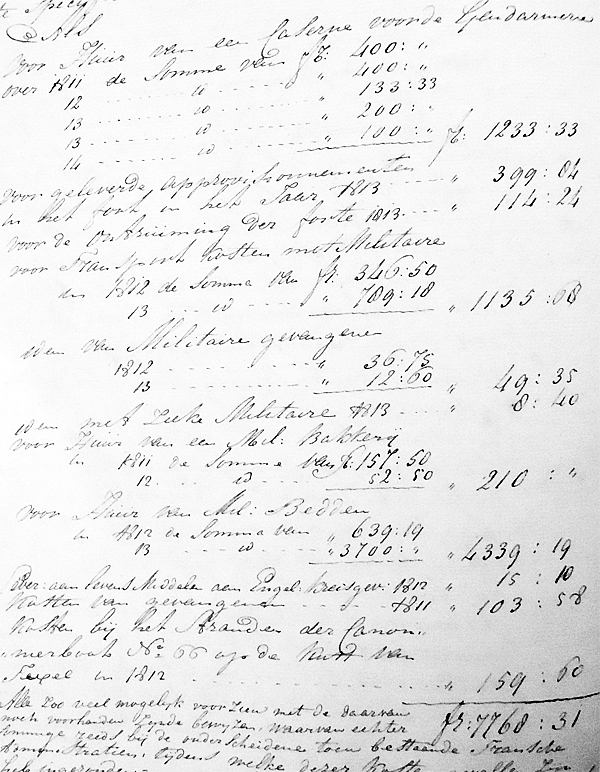 te Specif
Als
voor Huur van een Caserne voor de Gendarmerie
over 1811 de Somme van fr: 400: "
12 id " 400: "
13 id " 133:33
13 id " 200: "
14 id " 100: " fr: 1233:33
voor geleverde approvisionnementen
in het fort in het Jaar 1813 " 399:04
voor de ontruiming der forte 1813 " 114:24
voor Transport kosten met Militaire
in 1812 de Somma van fr: 346:50
13 id " 789:18 " 1135:68
idem van Militaire gevangenen
1812 " 36:75
13 " 12:60 " 49:35
idem met Zieke Militaire 1813 " 8:40
voor Huur van een Mil: Bakkerij
in 1811 de Somme van fr: 157:50
12 id 52:50 " 210: "
voor Huur van Mil: Bedden
in 1812 de Somma van " 639:19
13 id " 3700: " " 4339:19
aan levens Middelen aan Engel: kreisgev: 1812 " 15:10
Kosten van gevangenen 1811 " 103:58
Kosten bij het Stranden der Canon,,
,,neerboot No 66 op de Kust van
Texel in 1812 " 159:60
Alle zoo veel mogelijk voorzien met de daarvan
noch voorhanden Zynde bewyzen, waarvan echter fr: 7768:31
zommige reeds bij de onderscheidene toen bestaande Fransche
tijdens welke dezer